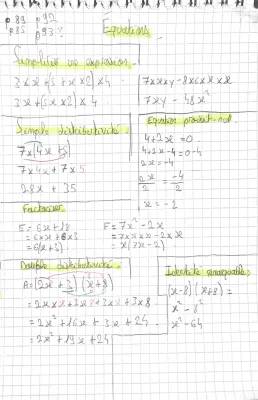 p 89 p 92
p 85 p 93
Equations
Simplifier une expression.
3 x x + 5 x x 2 x 4
3x + 5 x x 2 x 4
7 x x x y - 8 x 6 x x x x
7xy - 48x²
Simple distributivité :
7 x (4x + 5)
7 x 4x + 7 x 5
28x + 35
Equation produit-nul
4 + 2x = 0
4 + 2x - 4 = 0 - 4
2x = -4
2x/2 = -4/2
x = -2
Factoriser
E = 6x + 18
= 6 x x + 6 x 3
= 6(x + 3)
F = 7x² - 2x
= 7 x x x x - 2 x x
= x(7x - 2)
Double distributivité :
A = (2x + 3)(x + 8)
= 2x x x + 2x x 8 + 3 x x + 3 x 8
= 2x² + 16x + 3x + 24
= 2x² + 19x + 24
Identité remarquable :
(x - 8)(x + 8) =
x² - 8²
x² - 64